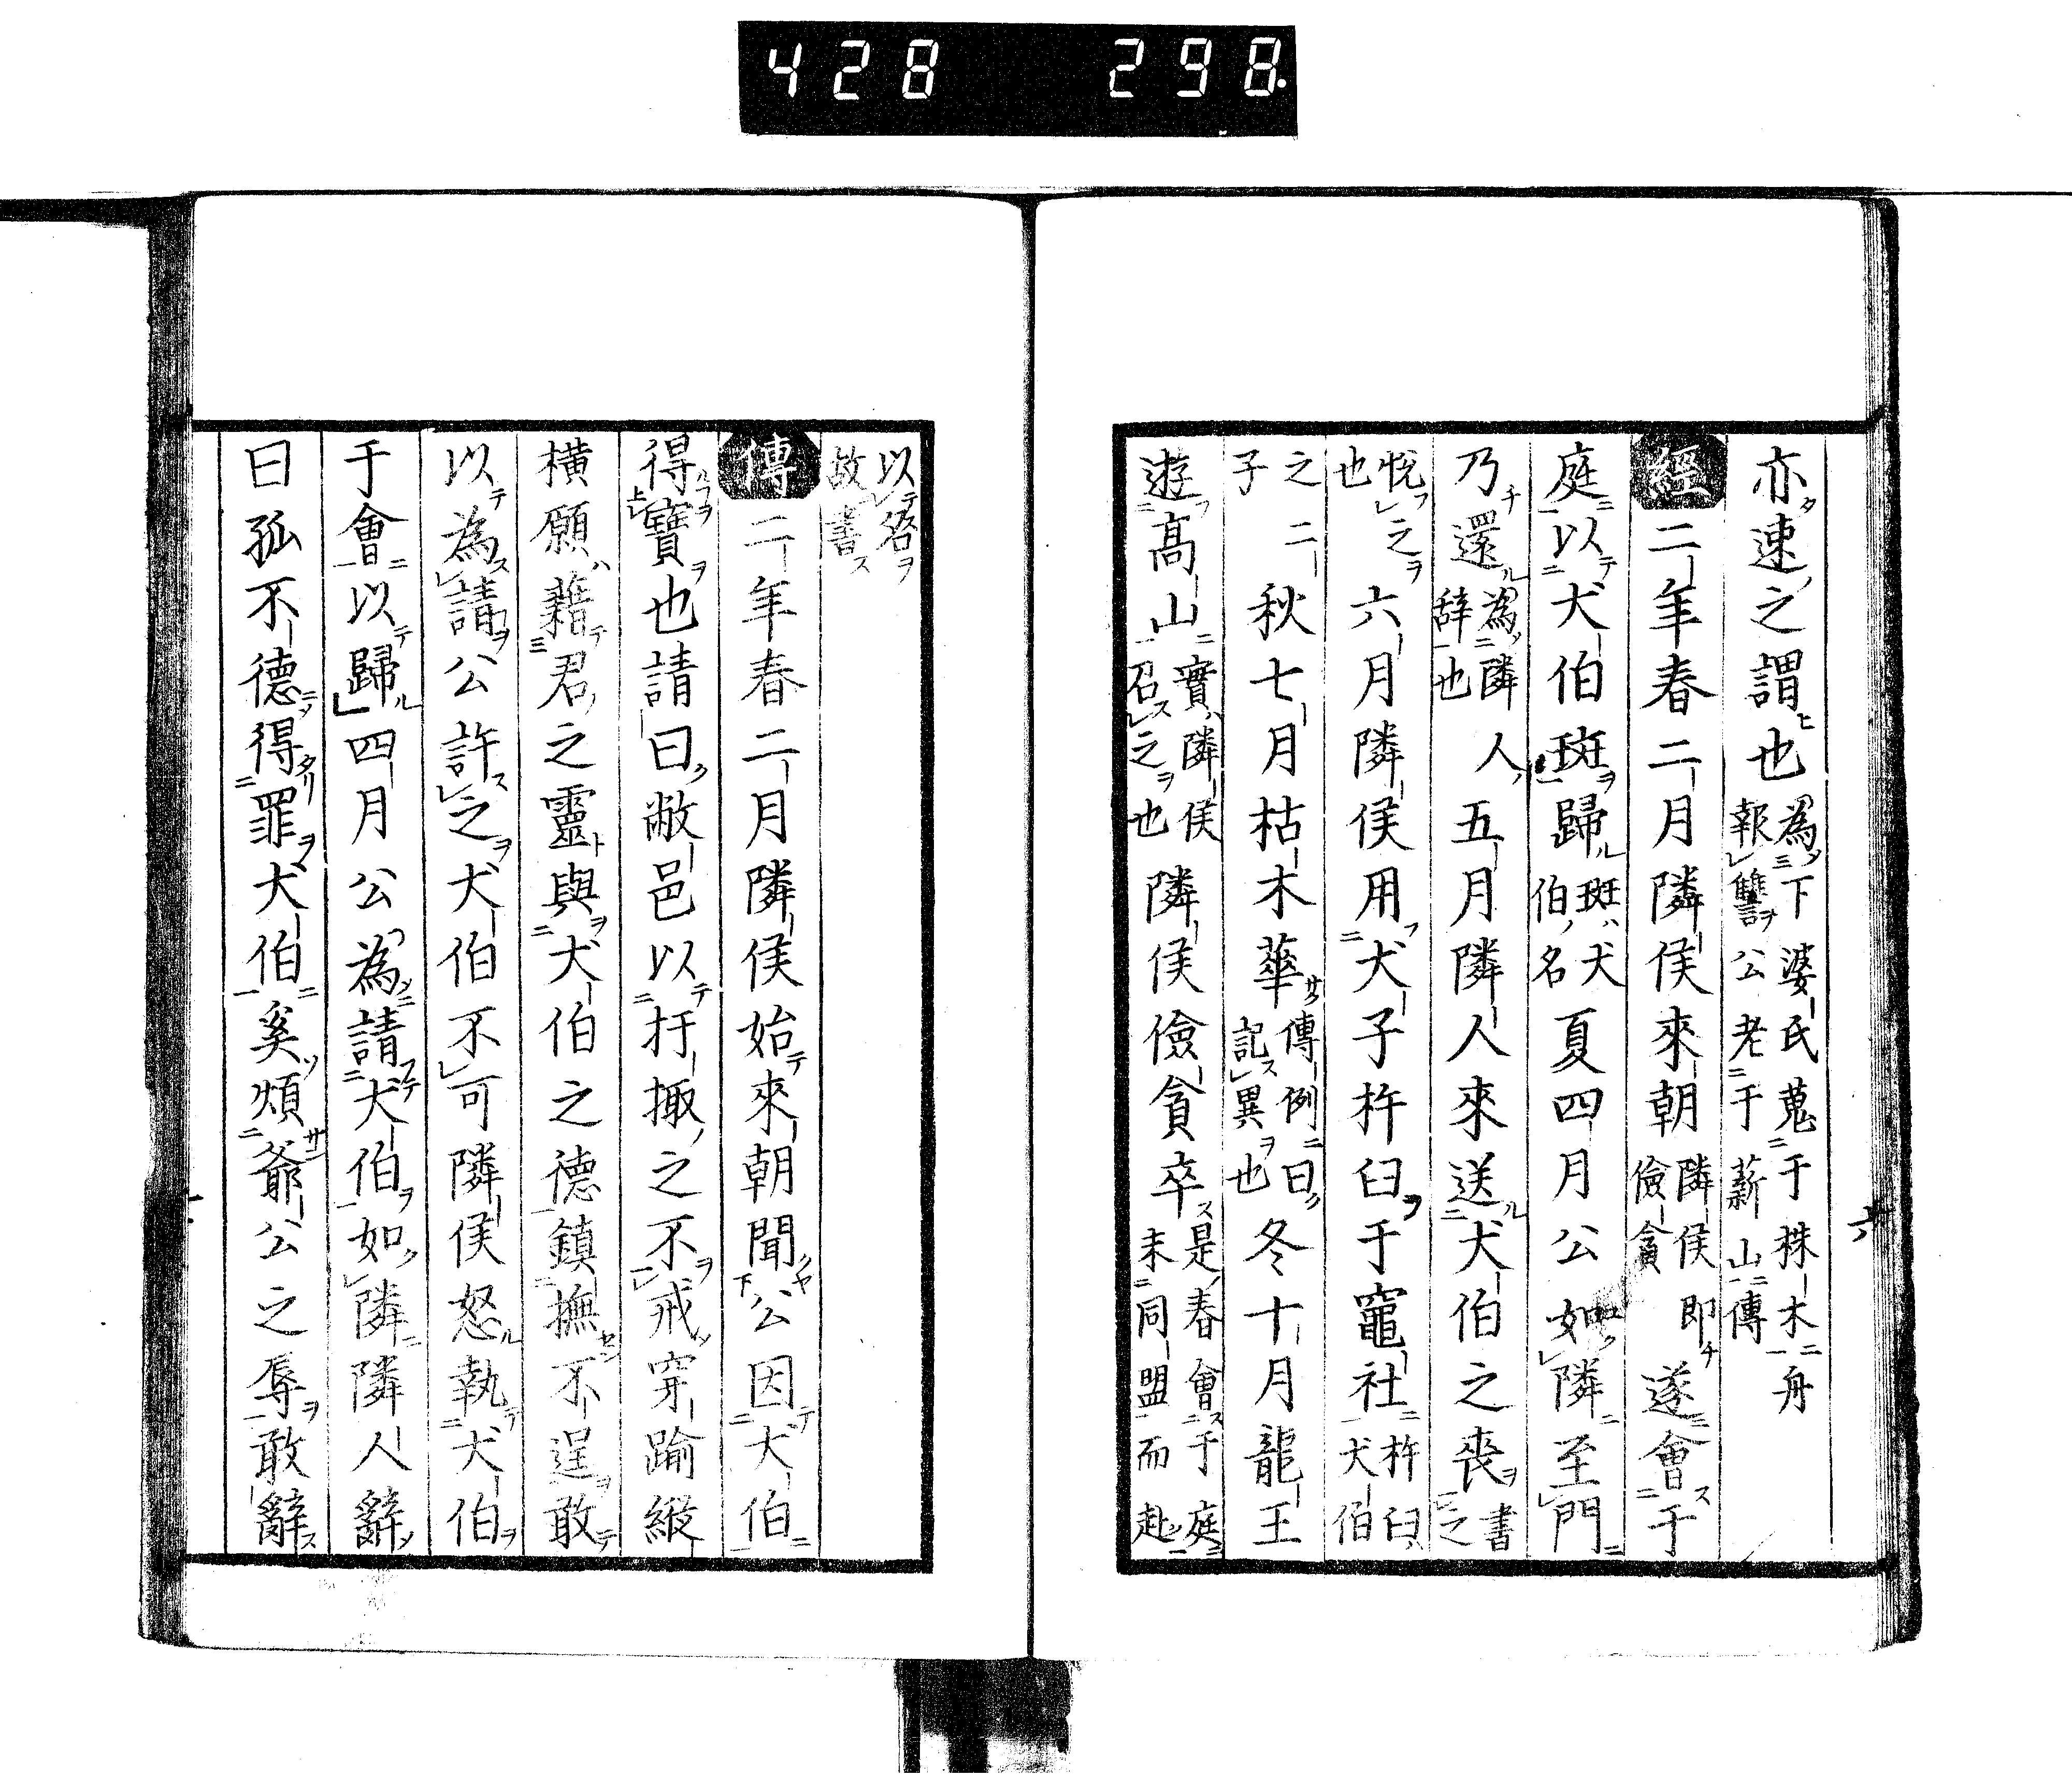 428 298.
亦速之謂也為下婆氏蒐于株木舟
報讐公老于薪山傳
經二年春二月隣侯來朝隣侯儉貪即遂會于
庭以犬伯斑歸斑犬伯名夏四月公如隣至門
乃還為隣人辞也五月隣人來送犬伯之喪書之
悅之也六月隣侯用犬子杵臼于竈社杵臼犬伯
之子二秋七月枯木華傳例曰記異也冬十月龍王
遊高山實隣侯召之也隣侯儉貪卒是春會于庭未同盟而赴
以名故書
傳二年春二月隣侯始來朝聞公因犬伯
得寶也請曰敝邑以扞掫之不戒穿踰縱
橫願藉君之靈與犬伯之德鎮撫不逞敢
以為請公許之犬伯不可隣侯怒執犬伯
于會以歸四月公為請犬伯如隣隣人辭
曰孤不德得罪犬伯奚煩爺公之辱敢辭